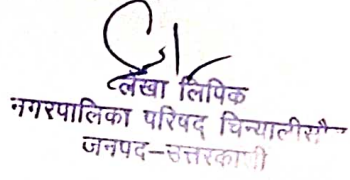 लेखा लिपिक
नगरपालिका परिषद चिन्यालीसौ
जनपद-उत्तरकाशी